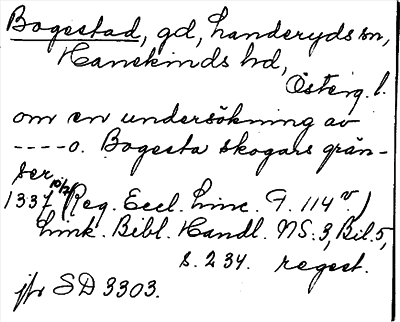 Bogestad, gd, Landeryds sn,
Hanekinds hd,
Österg. l.
om en undersökning av
----o. Bogesta skogars grän-
ser
1337 10/2 (Reg. Eccl. Linc. F. 114 v.)
Link. Bibl. Handl. NS. 3, Bil. 5,
s. 234. regest.
jfr SD 3303.